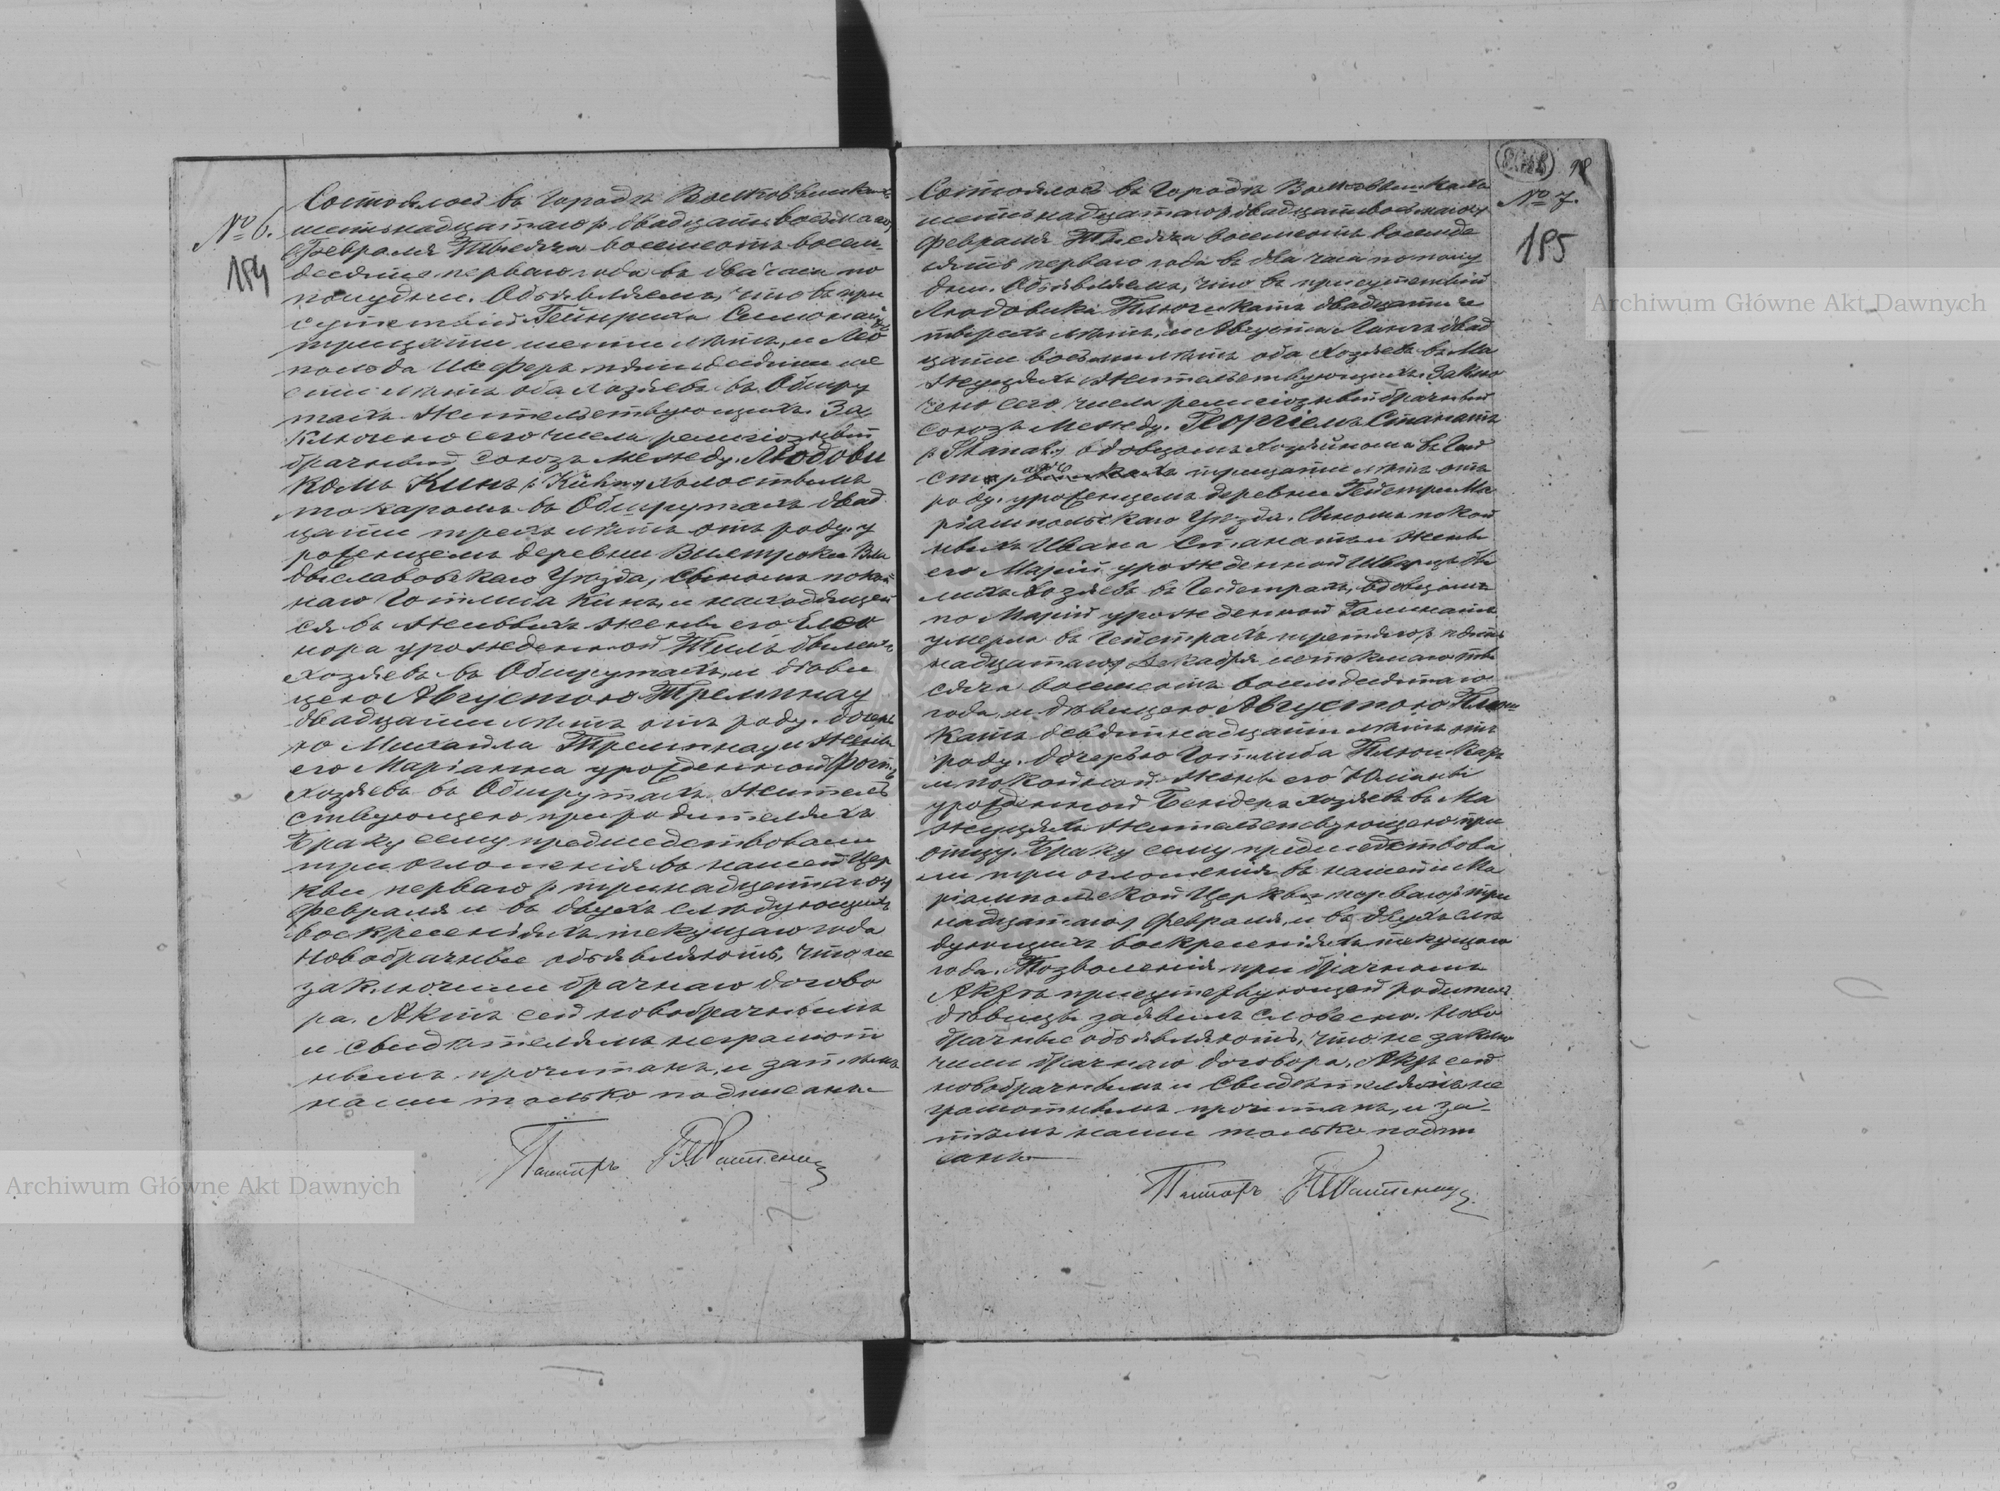 № 6.
184
Состоялось въ городѣ Волковышкахъ
шестьнадцатаго / двадцать восьмаго /
Февраля Тысяча восемьсотъ восемь
десятъ перваго года въ два часа по
полудни. Объявляемъ, что въ при
сутствіи Гейнриха
тридцати шести лѣтъ, и Лео
польда Шеферъ пятидесяти ше
сти лѣтъ оба хозяевъ въ Обшру
тахъ жительствующихъ. За
ключено сего числа религіозный
брачный союзъ между Людови
комъ Кинъ / Kühn / холостымъ
токаромъ въ Обшрутахъ двад
цати трехъ лѣтъ отъ роду. у
роженцемъ деревни Выстроки Вла
дыславовскаго Уѣзда, сыномъ покой
наго Готлиба Кинъ, и находящей
ся въ живыхъ жены его Елео
нора урожденной Тиль бывшихъ
хозяевъ въ Обшрутахъ, и дѣви
цею Августою Тремпнау
двадцати лѣтъ отъ роду. дочерь
ю Михаила Тремпнау и жены
его Маріанна урожденной
хозяевъ въ Обшрутахъ. Житель
ствующею при родителяхъ
Браку сему предшедствовали
три оглошенія въ нашей Цер
кви перваго / тринадцатаго /
Февраля и въ двухъ слѣдующихъ
воскресеніяхъ текущаго года
Новобрачные объявляютъ, что не
заключили брачнаго догово
ра. Актъ сей новобрачнымъ
и свидѣтелямъ неграмот
нымъ прочитанъ, и затѣмъ
нами только подписанъ.
Пасторъ
98
№ 7.
185
Состоялось въ городѣ Волковышкахъ
шестьнадцатаго / двадцать восьмаго /
Февраля Тысяча восемьсотъ восемьде
сятъ перваго года въ два часа пополу
дни. Объявляемъ, что въ присутствіи
Людовика Плюшкатъ двадцати че
тырехъ лѣтъ, и Августа Лангъ двад
цати восьми лѣтъ оба хозяевъ въ Ма
жуцяхъ жительствующихъ. Заклю
чено сего числа религіозный брачный
союзъ между Георгіемъ Станатъ
/ Stanat / вдовцомъ хозяйномъ въ Гей
тридцати лѣтъ отъ
роду. уроженцемъ деревни Гейстри Ма
ріампольскаго Уѣзда. сыномъ покой
ныхъ Ивана Станатъ и жены
его Маріи урожденной Шварцъ бы
лыхъ хозяевъ въ Гейстрахъ, вдовцомъ
по Маріи урожденной
умерла въ Гейстрахъ третяго / пять
надцатаго / Декабря истекшаго ты
сяча восемьсотъ восемьдесятаго
года, и дѣвицею Августою Плюш
катъ девятнадцати лѣтъ отъ
роду. дочерью Готлиба Плюшкатъ
и покойной жены его Юліаны
урожденной Бендеръ хозяевъ въ Ма
жуцяхъ жительствующею при
отцу. Браку сему предшедствова
ли три оглошенія въ нашей и Ма
ріампольской Церквѣ перваго / три
надцатаго / Февраля, и въ двухъ слѣ
дующихъ воскресеніяхъ текущаго
года. Позволенія при брачномъ
Актѣ присутствующей родитель
дѣвицы заявилъ словесно. Ново
брачные объявляютъ, что не заклю
чили брачнаго договора. Актъ сей
новобрачнымъ и свидѣтелямъ не
грамотнымъ прочитанъ, и за-
тѣмъ нами только подпи
санъ.
Пасторъ
Archiwum Główne Akt Dawnych
Archiwum Główne Akt Dawnych